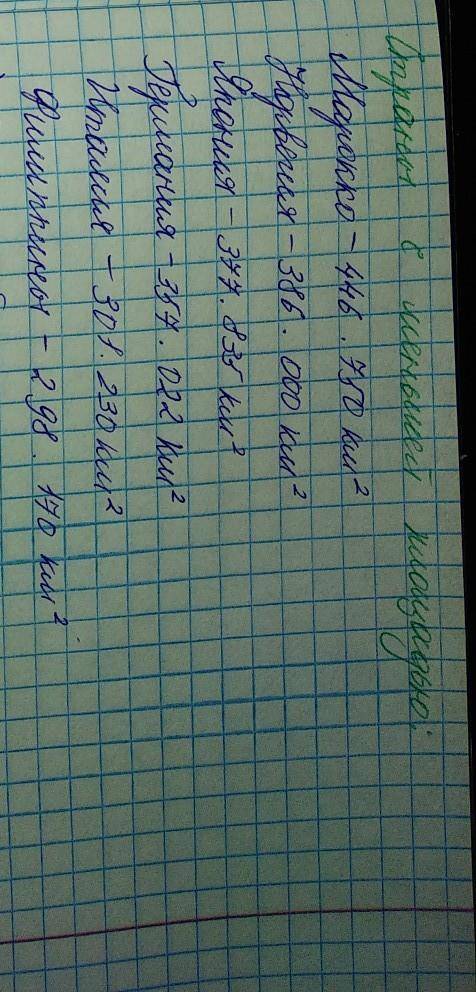 Страны с меньшей площадью:
Марокко - 446.750 км²
Норвегия - 386.000 км²
Япония - 377.835 км²
Германия - 357.022 км²
Италия - 301.230 км²
Филиппины - 298.170 км²